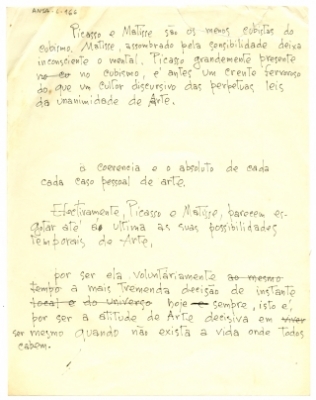 ANSA-C-166
Picasso e Matisse são os menos cubistas do
cubismo. Matisse, assombrado pela sensibilidade deixa
inconsciente o mental. Picasso grandemente presente
no cubismo, é antes um crente fermoso
do, que um cultor discursivo das perpetuas leis
da unanimidade de Arte.
a coerencia e o absoluto de cada
cada caso pessoal de arte.
Efectivamente, Picasso e Matisse, parecem es-
gotar até a ultima as suas possibilidades
temporais de Arte,
por ser ela voluntáriamente ao mesmo
tempo a mais tremenda decisão de instante
local e do universo hoje sempre, isto é,
por ser a atitude de Arte decisiva em viver
ser mesmo quando não exista a vida onde todos
cabem.